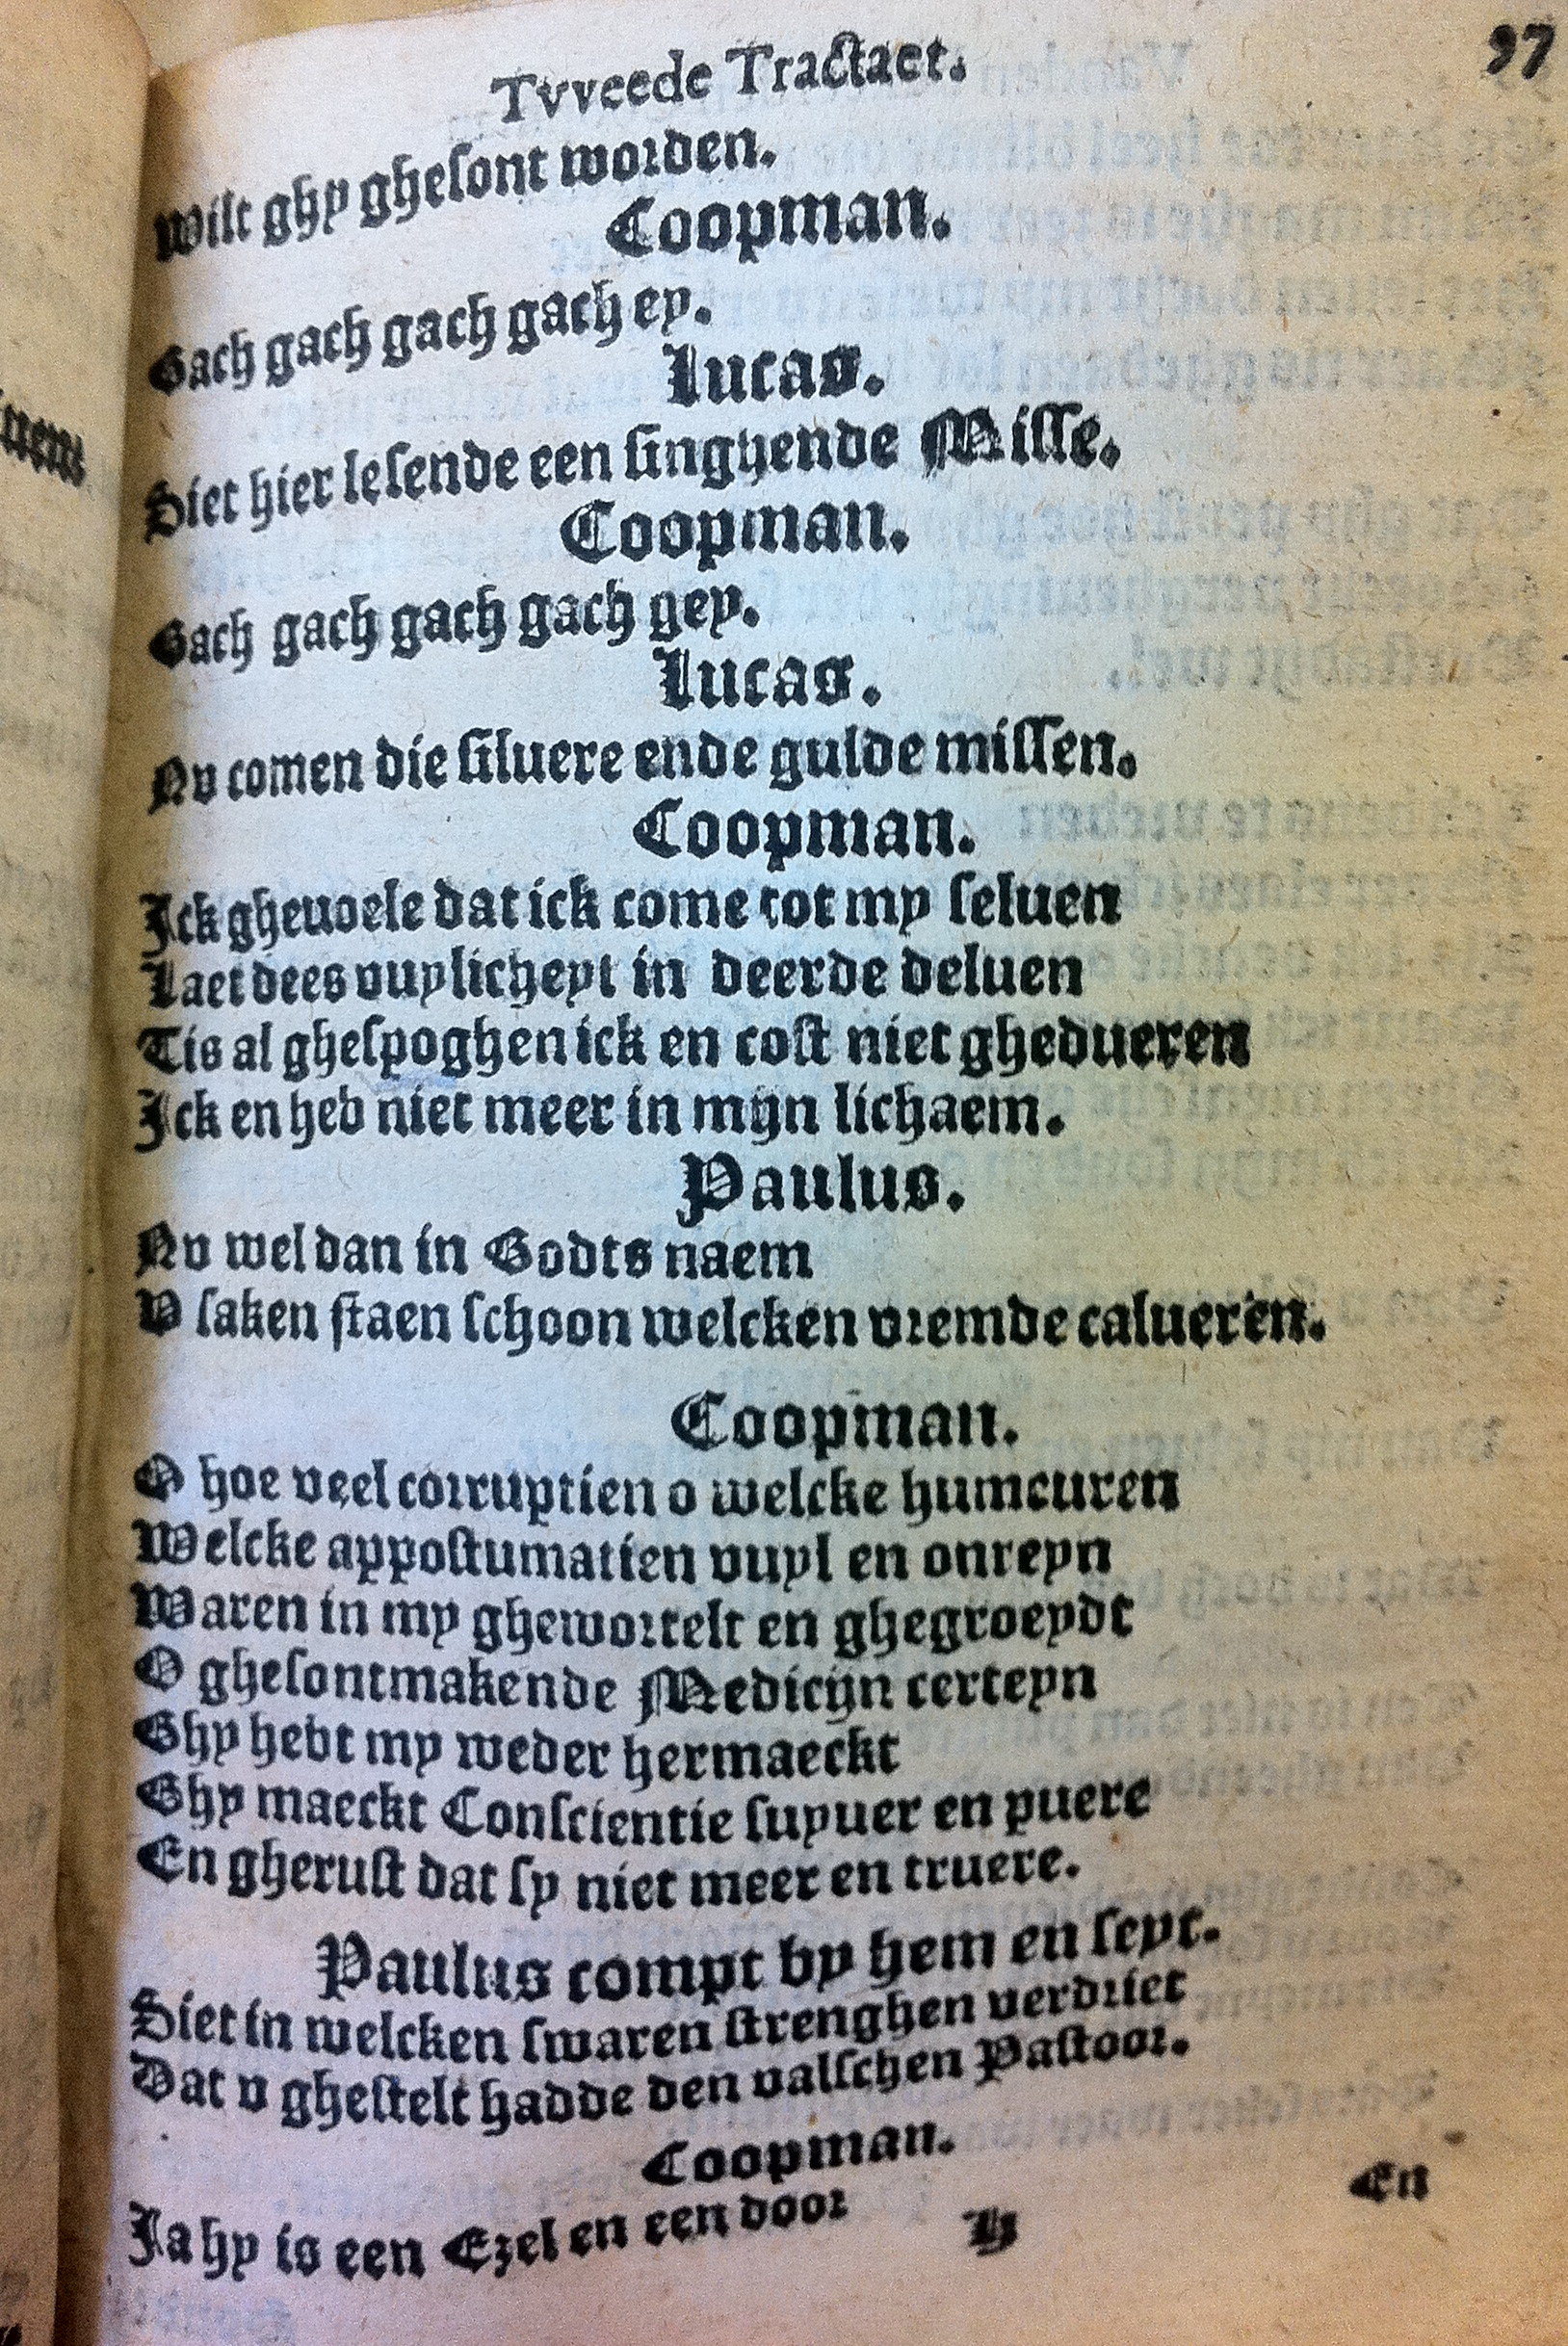 Tvveede Tractaet.
97
Wilt ghy ghesont worden.
Coopman.
Gach gach gach gach ey.
Lucas.
Siet hier lesende een singhende Misse.
Coopman.
Gach gach gach gach gey.
Lucas.
Nv comen die siluere ende gulde missen.
Coopman.
Ick gheuoele dat ick come tot my seluen
Laet dees vuylicheyt in deerde deluen
Tis al ghespoghen ick en cost niet ghedueren
Ick en heb niet meer in mijn lichaem.
Paulus.
Nv wel dan in Godts naem
V saken staen schoon welcken vremde calueren.
Coopman.
O hoe veel corruptien o welcke humeuren
Welcke appostumatien vuyl en onreyn
Waren in my ghewortelt en ghegroeydt
O ghesontmakende Medicijn certeyn
Ghy hebt my weder hermaeckt
Ghy maeckt Conscientie suyuer en puere
En gherust dat sy niet meer en truere.
Paulus compt by hem en seyt.
Siet in welcken swaren strenghen verdriet
Dat v ghestelt hadde den valschen Pastoor.
Coopman.
Ja hy is een Ezel en een door
H
En